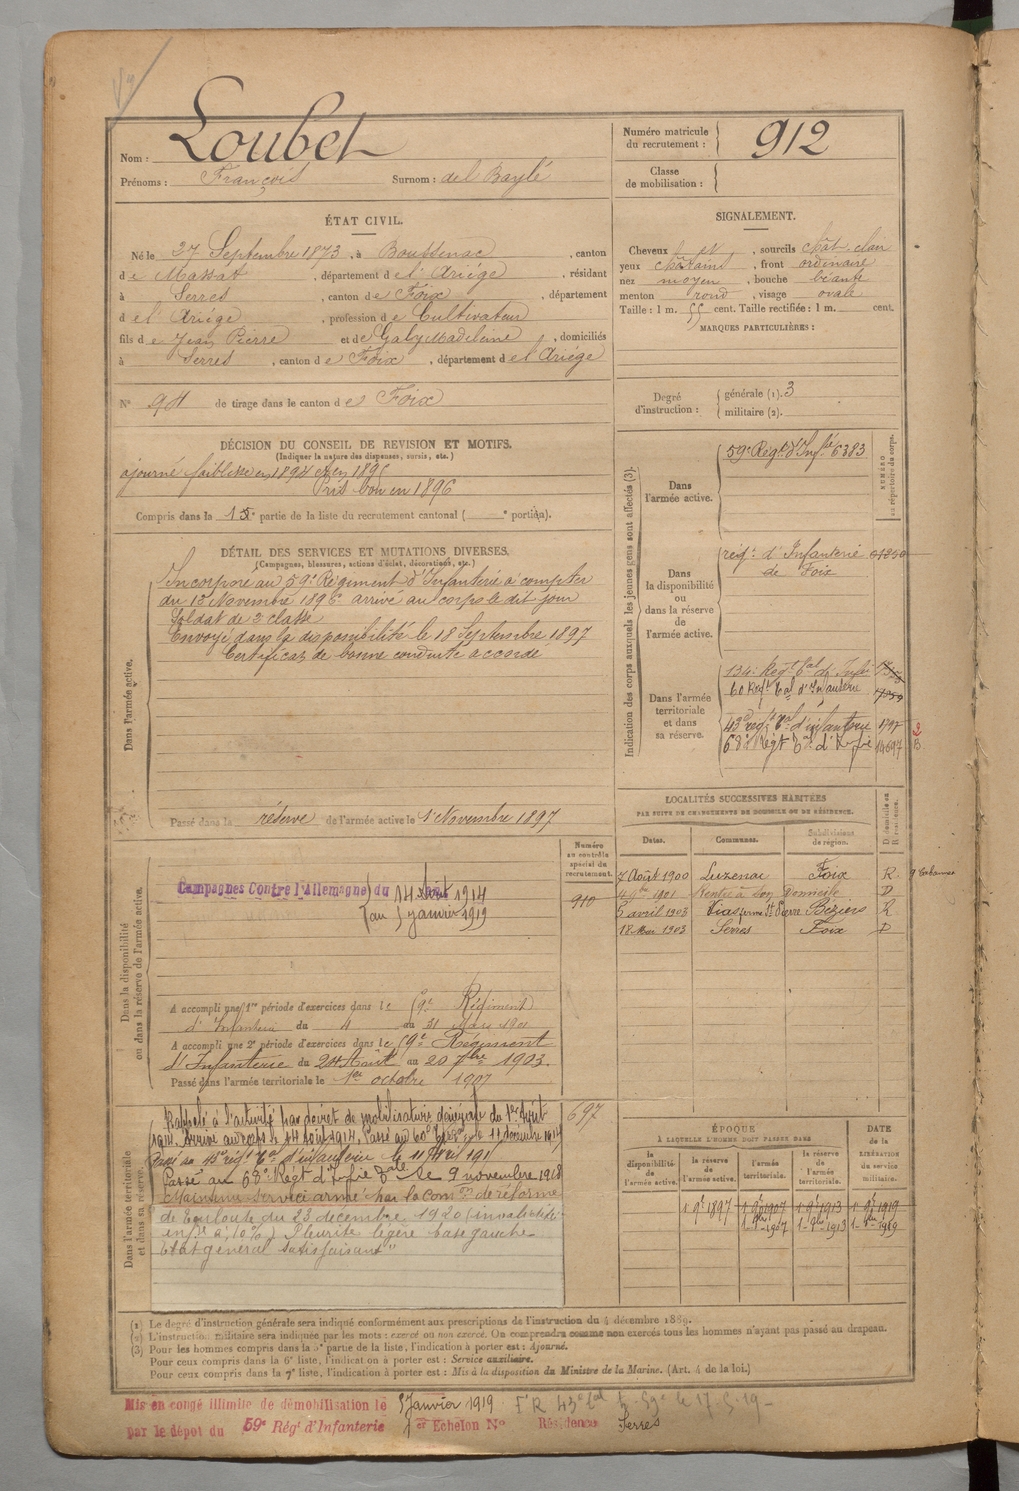 Loubet
Nom :
Prénoms : François Surnom : del Baylé
Numéro matricule
du recrutement : 912
Classe
de mobilisation :
ÉTAT CIVIL.
Né le 27 Septembre 1873, à Boussenac, canton
de Massat, département de l'Ariège, résidant
à Serres, canton de Foix, département
de l'Ariège, profession de Cultivateur
fils de Jean Pierre et de Galy Madeleine, domiciliés
à Serres, canton de Foix, département de l'Ariège
N° de tirage dans le canton de Foix
SIGNALEMENT.
Cheveux et, sourcils chât. clair
yeux châtains, front ordinaire
nez moyen, bouche béante
menton rond, visage ovale
Taille : 1 m. 55 cent. Taille rectifiée : 1 m. cent.
MARQUES PARTICULIÈRES :
Degré
d'instruction :
générale (1). 3
militaire (2).
DÉCISION DU CONSEIL DE REVISION ET MOTIFS.
(Indiquer la nature des dispenses, sursis, etc.)
ajourné faiblesse en 1894 et en 1895
Pris bon en 1896
Compris dans la partie de la liste du recrutement cantonal ( portion).
DÉTAIL DES SERVICES ET MUTATIONS DIVERSES.
(Campagnes, blessures, actions d'éclat, décorations, etc.)
Dans l'armée active.
Incorporé au 59e Régiment d'Infanterie à compter
du Novembre 1896 arrivé au corps le dit jour
Soldat de 2e classe
Envoyé dans la disponibilité le 18 Septembre 1897
Certificat de bonne conduite accordé
Passé dans la réserve de l'armée active le 1er Novembre 1897
Indication des corps auxquels les jeunes gens sont affectés (3).
NUMÉRO
au répertoire du corps.
Dans
l'armée active.
59e Régt d'Infie 6383
Dans
la disponibilité
ou
dans la réserve
de
l'armée active.
régt d'Infanterie
de Foix
Dans l'armée
territoriale
et dans
sa réserve.
134e Régt tal de Infie
60 Régt tal d'Infanterie
43e régt tal d'infanterie 1797
68e Régt tal d'Infie
LOCALITÉS SUCCESSIVES HABITÉES
PAR SUITE DE CHANGEMENTS DE DOMICILE OU DE RÉSIDENCE.
Dates. Communes. Subdivisions
de région. D. domicile ou
R. résidence.
7 Août 1900 Luzenac Foix R
1901 Rentré à son Domicile D
5 avril 1903 Vias ferme St Pierre Béziers R
18 Mai 1903 Serres Foix D
Dans la disponibilité
ou dans la réserve de l'armée active.
Numéro
au contrôle
spécial du
recrutement.
910
Campagnes Contre l'Allemagne du 14 Août 1914
au 5 janvier 1919
A accompli une 1re période d'exercices dans le 59e Régiment
d'Infanterie du 4 au 31 Mars 1901
A accompli une 2e période d'exercices dans le 59e Régiment
d'Infanterie du 24 Août au 20 7bre 1903.
Passé dans l'armée territoriale le 1er octobre 1907
Dans l'armée territoriale
et dans sa réserve.
697
Rappelé à l'activité par décret de mobilisation générale du 1er Août
1914. Arrivé au corps le 14 août 1914. Passé au 60e le 11 décembre 1914
Passé au 43e régt tal d'infanterie le 11
Passé au 68e Régt d'Infie tale le 9 novembre 1918
Maintenu service armé par la Comon de réforme
de Toulouse du 23 décembre 1920 (invalidité
infre à 10%) Pleurite légère base gauche
Etat général satisfaisant"
ÉPOQUE
À LAQUELLE L'HOMME DOIT PASSER DANS
la
disponibilité
de
l'armée active.
la réserve
de
l'armée active.
l'armée
territoriale.
la réserve
de
l'armée
territoriale.
DATE
de la
LIBÉRATION
du service
militaire.
(1) Le degré d'instruction générale sera indiqué conformément aux prescriptions de l'instruction du 4 décembre 1889.
(2) L'instruction militaire sera indiquée par les mots : exercé ou non exercé. On comprendra comme non exercés tous les hommes n'ayant pas passé au drapeau.
(3) Pour les hommes compris dans la 5e partie de la liste, l'indication à porter est : Ajourné.
Pour ceux compris dans la 6e liste, l'indication à porter est : Service auxiliaire.
Pour ceux compris dans la 7e liste, l'indication à porter est : Mis à la disposition du Ministre de la Marine. (Art. 4 de la loi.)
Mis en congé illimité de démobilisation le 5 Janvier 1919
par le dépôt du 59e Régt d'Infanterie Echelon N° Résidence Serres